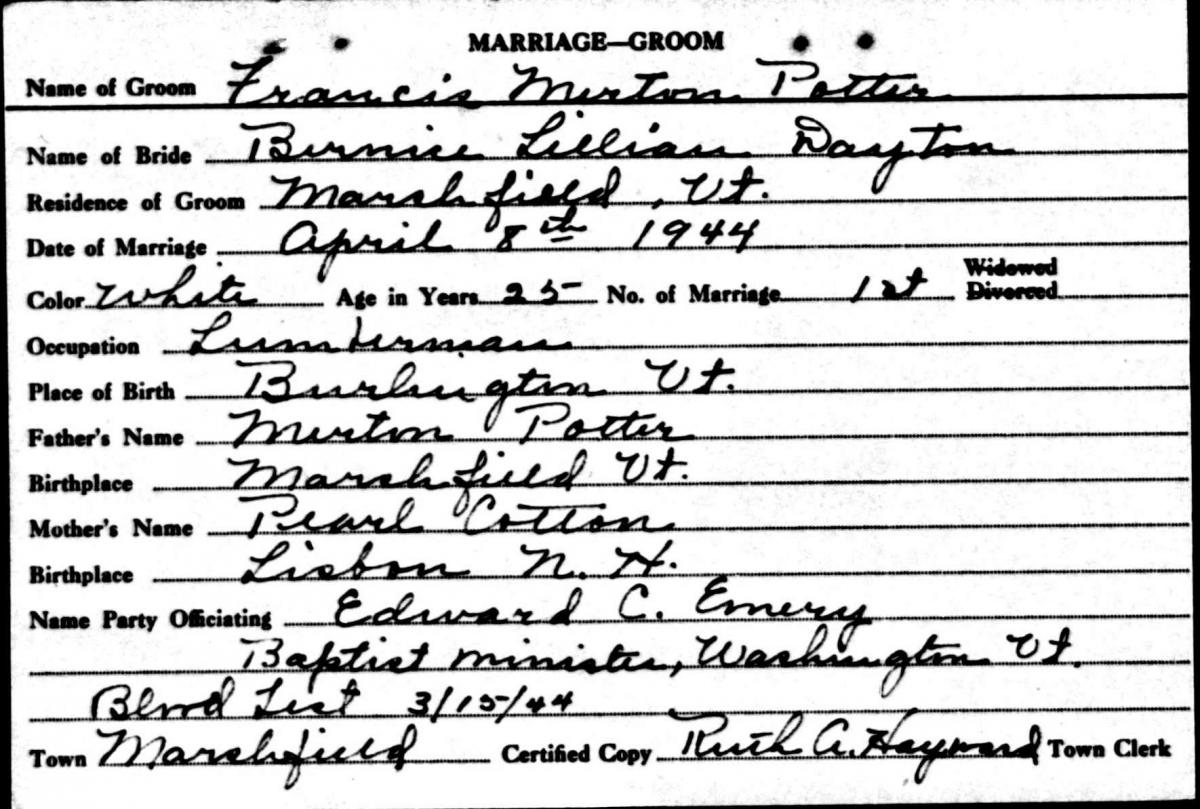 MARRIAGE—GROOM
Name of Groom Francis Merton Potter
Name of Bride Bernice Lillian Dayton
Residence of Groom Marshfield, Vt.
Date of Marriage April 8th 1944
Color White Age in Years 25 No. of Marriage 1st Widowed Divorced
Occupation Lumberman
Place of Birth Burlington Vt.
Father's Name Merton Potter
Birthplace Marshfield Vt.
Mother's Name Pearl Cotton
Birthplace Lisbon N. H.
Name Party Officiating Edward C. Emery
Baptist minister, Washington Vt.
Blood Test 3/15/44
Town Marshfield Certified Copy Ruth A. Hayward Town Clerk